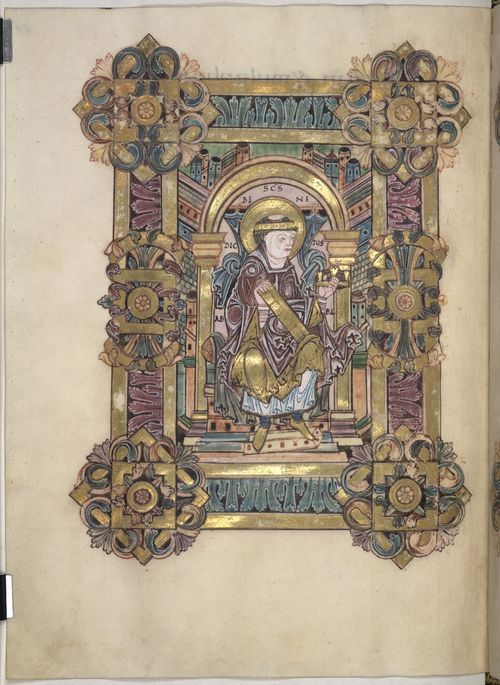 SCS
BE NE
DIC TUS
AB BA